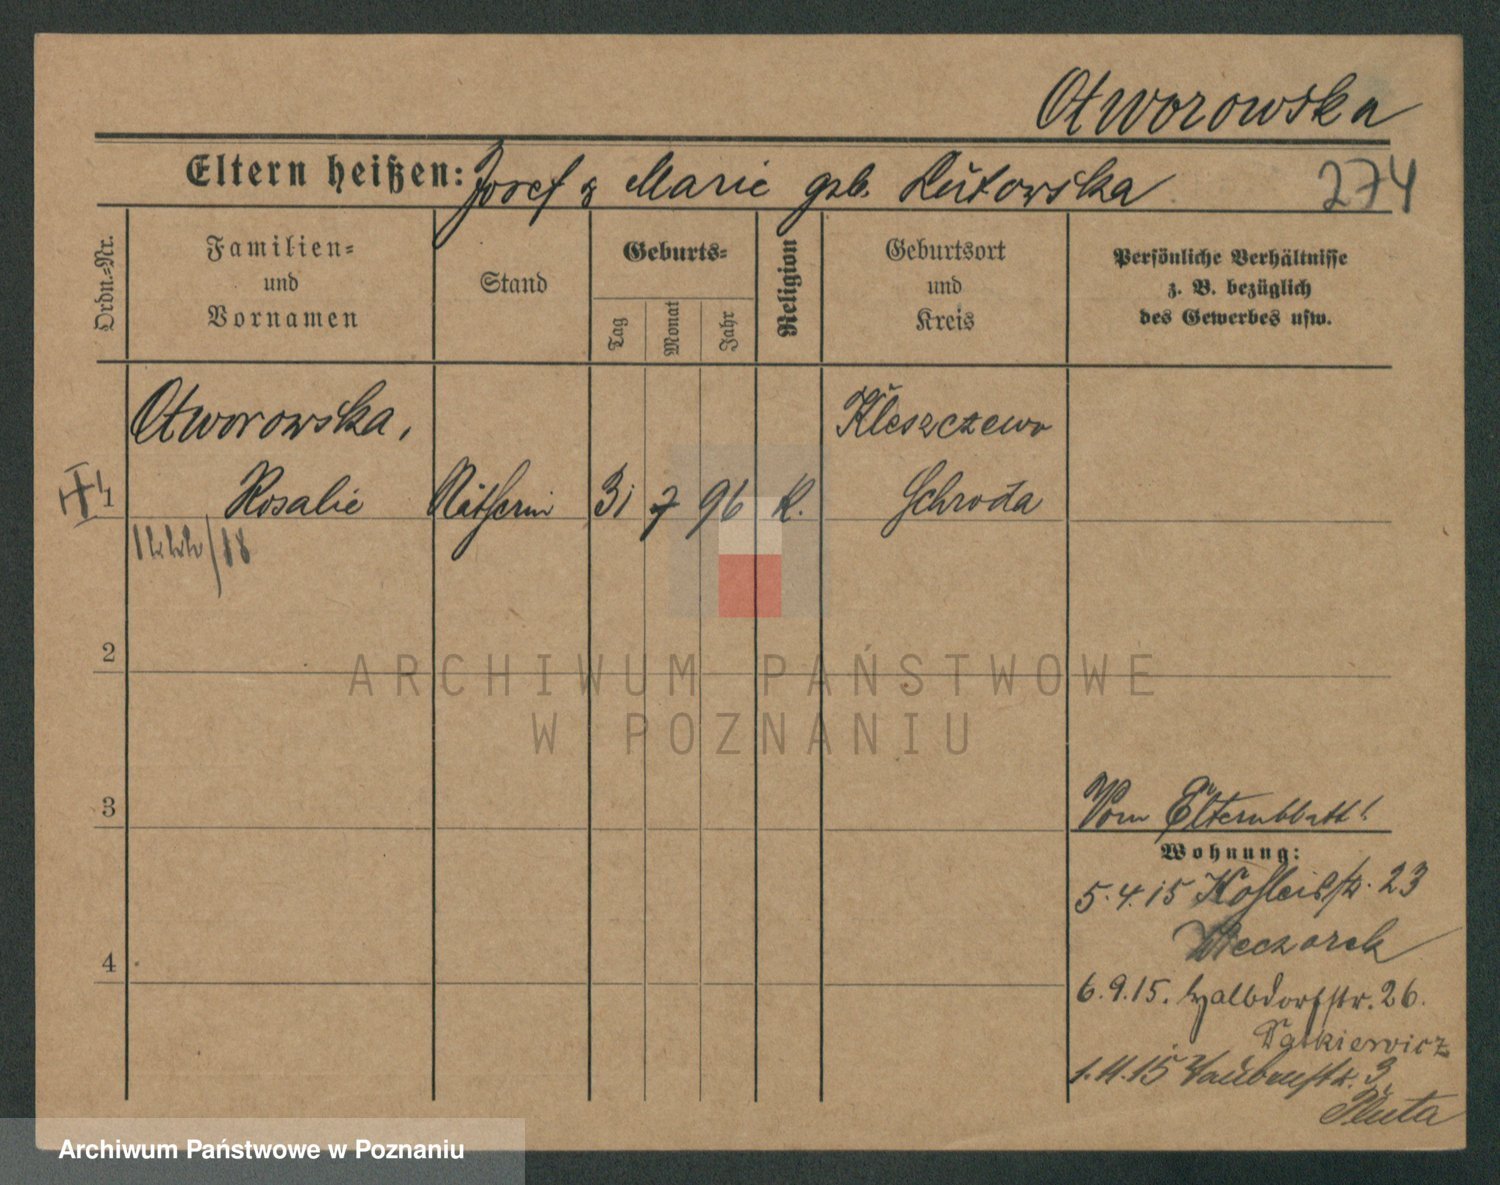 Otworowska
Eltern heißen: Josef & Marie geb. Rutowska
274
Ordn.=Nr.
Familien=
und
Vornamen
Stand
Geburts=
Tag
Monat
Jahr
Religion
Geburtsort
und
Kreis
Persönliche Verhältnisse
z. B. bezüglich
des Gewerbes usw.
Otworowska,
Rosalie
1
Näherin
31 7 96 K.
Kleszczewo
Schroda
2
3
4
Vom Elternblatt!
Wohnung:
5.4.15 23
6.9.15. Halbdorfstr. 26.
1.11.15 Taubenstr. 3
Pluta
ARCHIWUM PAŃSTWOWE
W POZNANIU
Archiwum Państwowe w Poznaniu